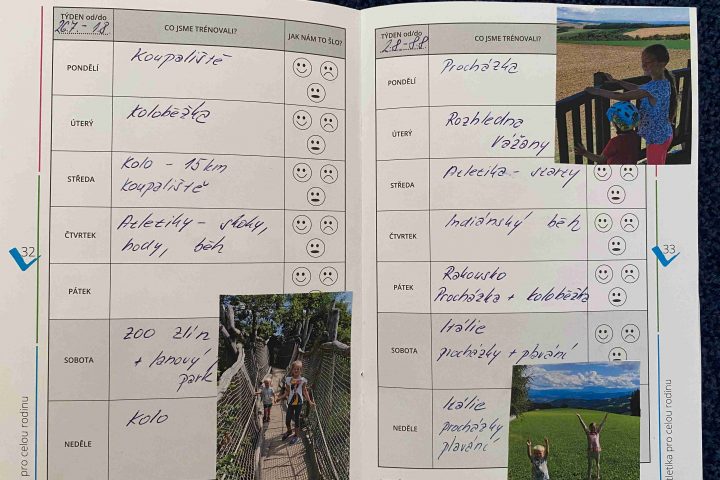 TÝDEN od/do
26.7. - 1.8
CO JSME TRÉNOVALI?
JAK NÁM TO ŠLO?
PONDĚLÍ
Koupaliště
ÚTERÝ
Koloběžka
STŘEDA
Kolo - 15 km
Koupaliště
ČTVRTEK
Atletiky - skoky,
hody, běh
PÁTEK
SOBOTA
ZOO Zlín
+ lanový
park
NEDĚLE
Kolo
32
pro celou rodinu
TÝDEN od/do
2.8 - 8.8.
CO JSME TRÉNOVALI?
PONDĚLÍ
Procházka
ÚTERÝ
Rozhledna
Vážany
STŘEDA
Atletika - starty
ČTVRTEK
Indiánský běh
PÁTEK
Rakousko
Procházka + koloběžka
SOBOTA
Itálie
procházky + plavání
NEDĚLE
Itálie
procházky
plavání
33
tletika pro celou rodinu